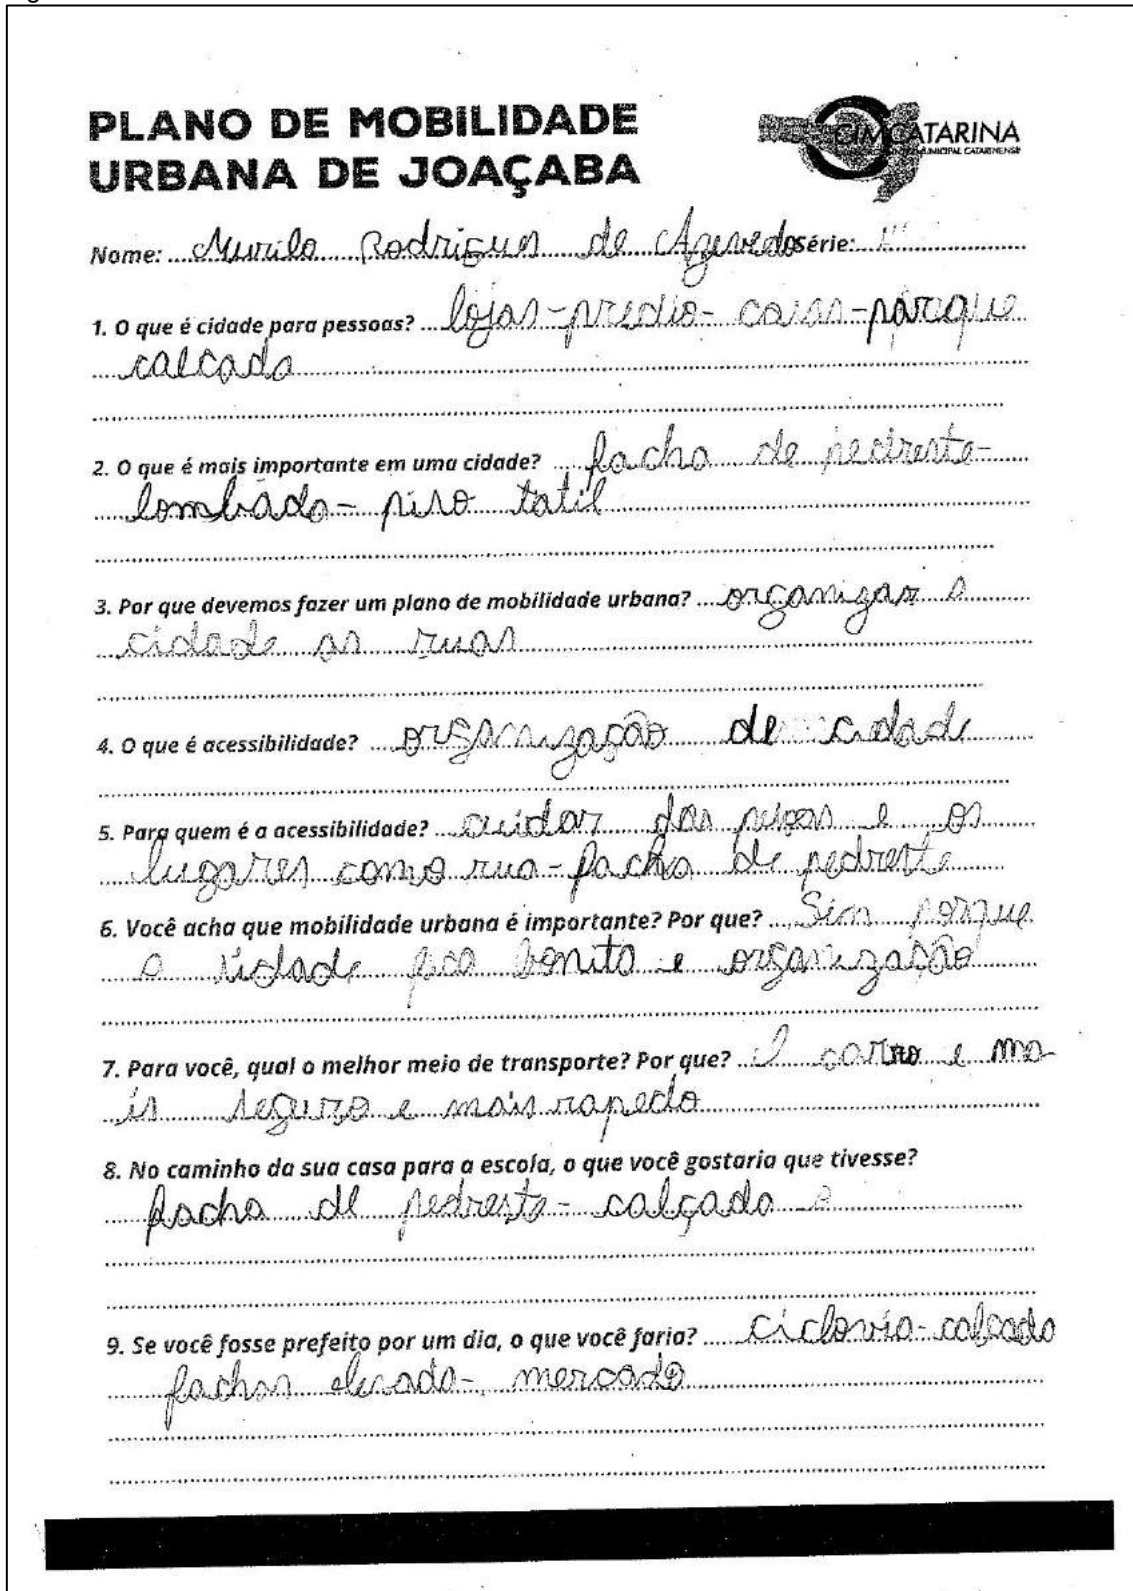 PLANO DE MOBILIDADE
URBANA DE JOAÇABA
CIMCATARINA
Nome: Murilo Rodrigues de Azevedo série:
1. O que é cidade para pessoas? lojas - predio - casas - parque
calcada
2. O que é mais importante em uma cidade? facha de pedreste -
lombada - piso tatil
3. Por que devemos fazer um plano de mobilidade urbana? organizar a
cidade as ruas
4. O que é acessibilidade? organização de cidade
5. Para quem é a acessibilidade? cuidar das pesoas e os
lugares como rua - facha de pedreste
6. Você acha que mobilidade urbana é importante? Por que? Sim porque
a cidade fica bonita e organização
7. Para você, qual o melhor meio de transporte? Por que? O carro e ma-
is seguro e mais rapedo
8. No caminho da sua casa para a escola, o que você gostaria que tivesse?
facha de pedreste - calçada
9. Se você fosse prefeito por um dia, o que você faria? ciclovia - calcada
fachas elevada - mercado